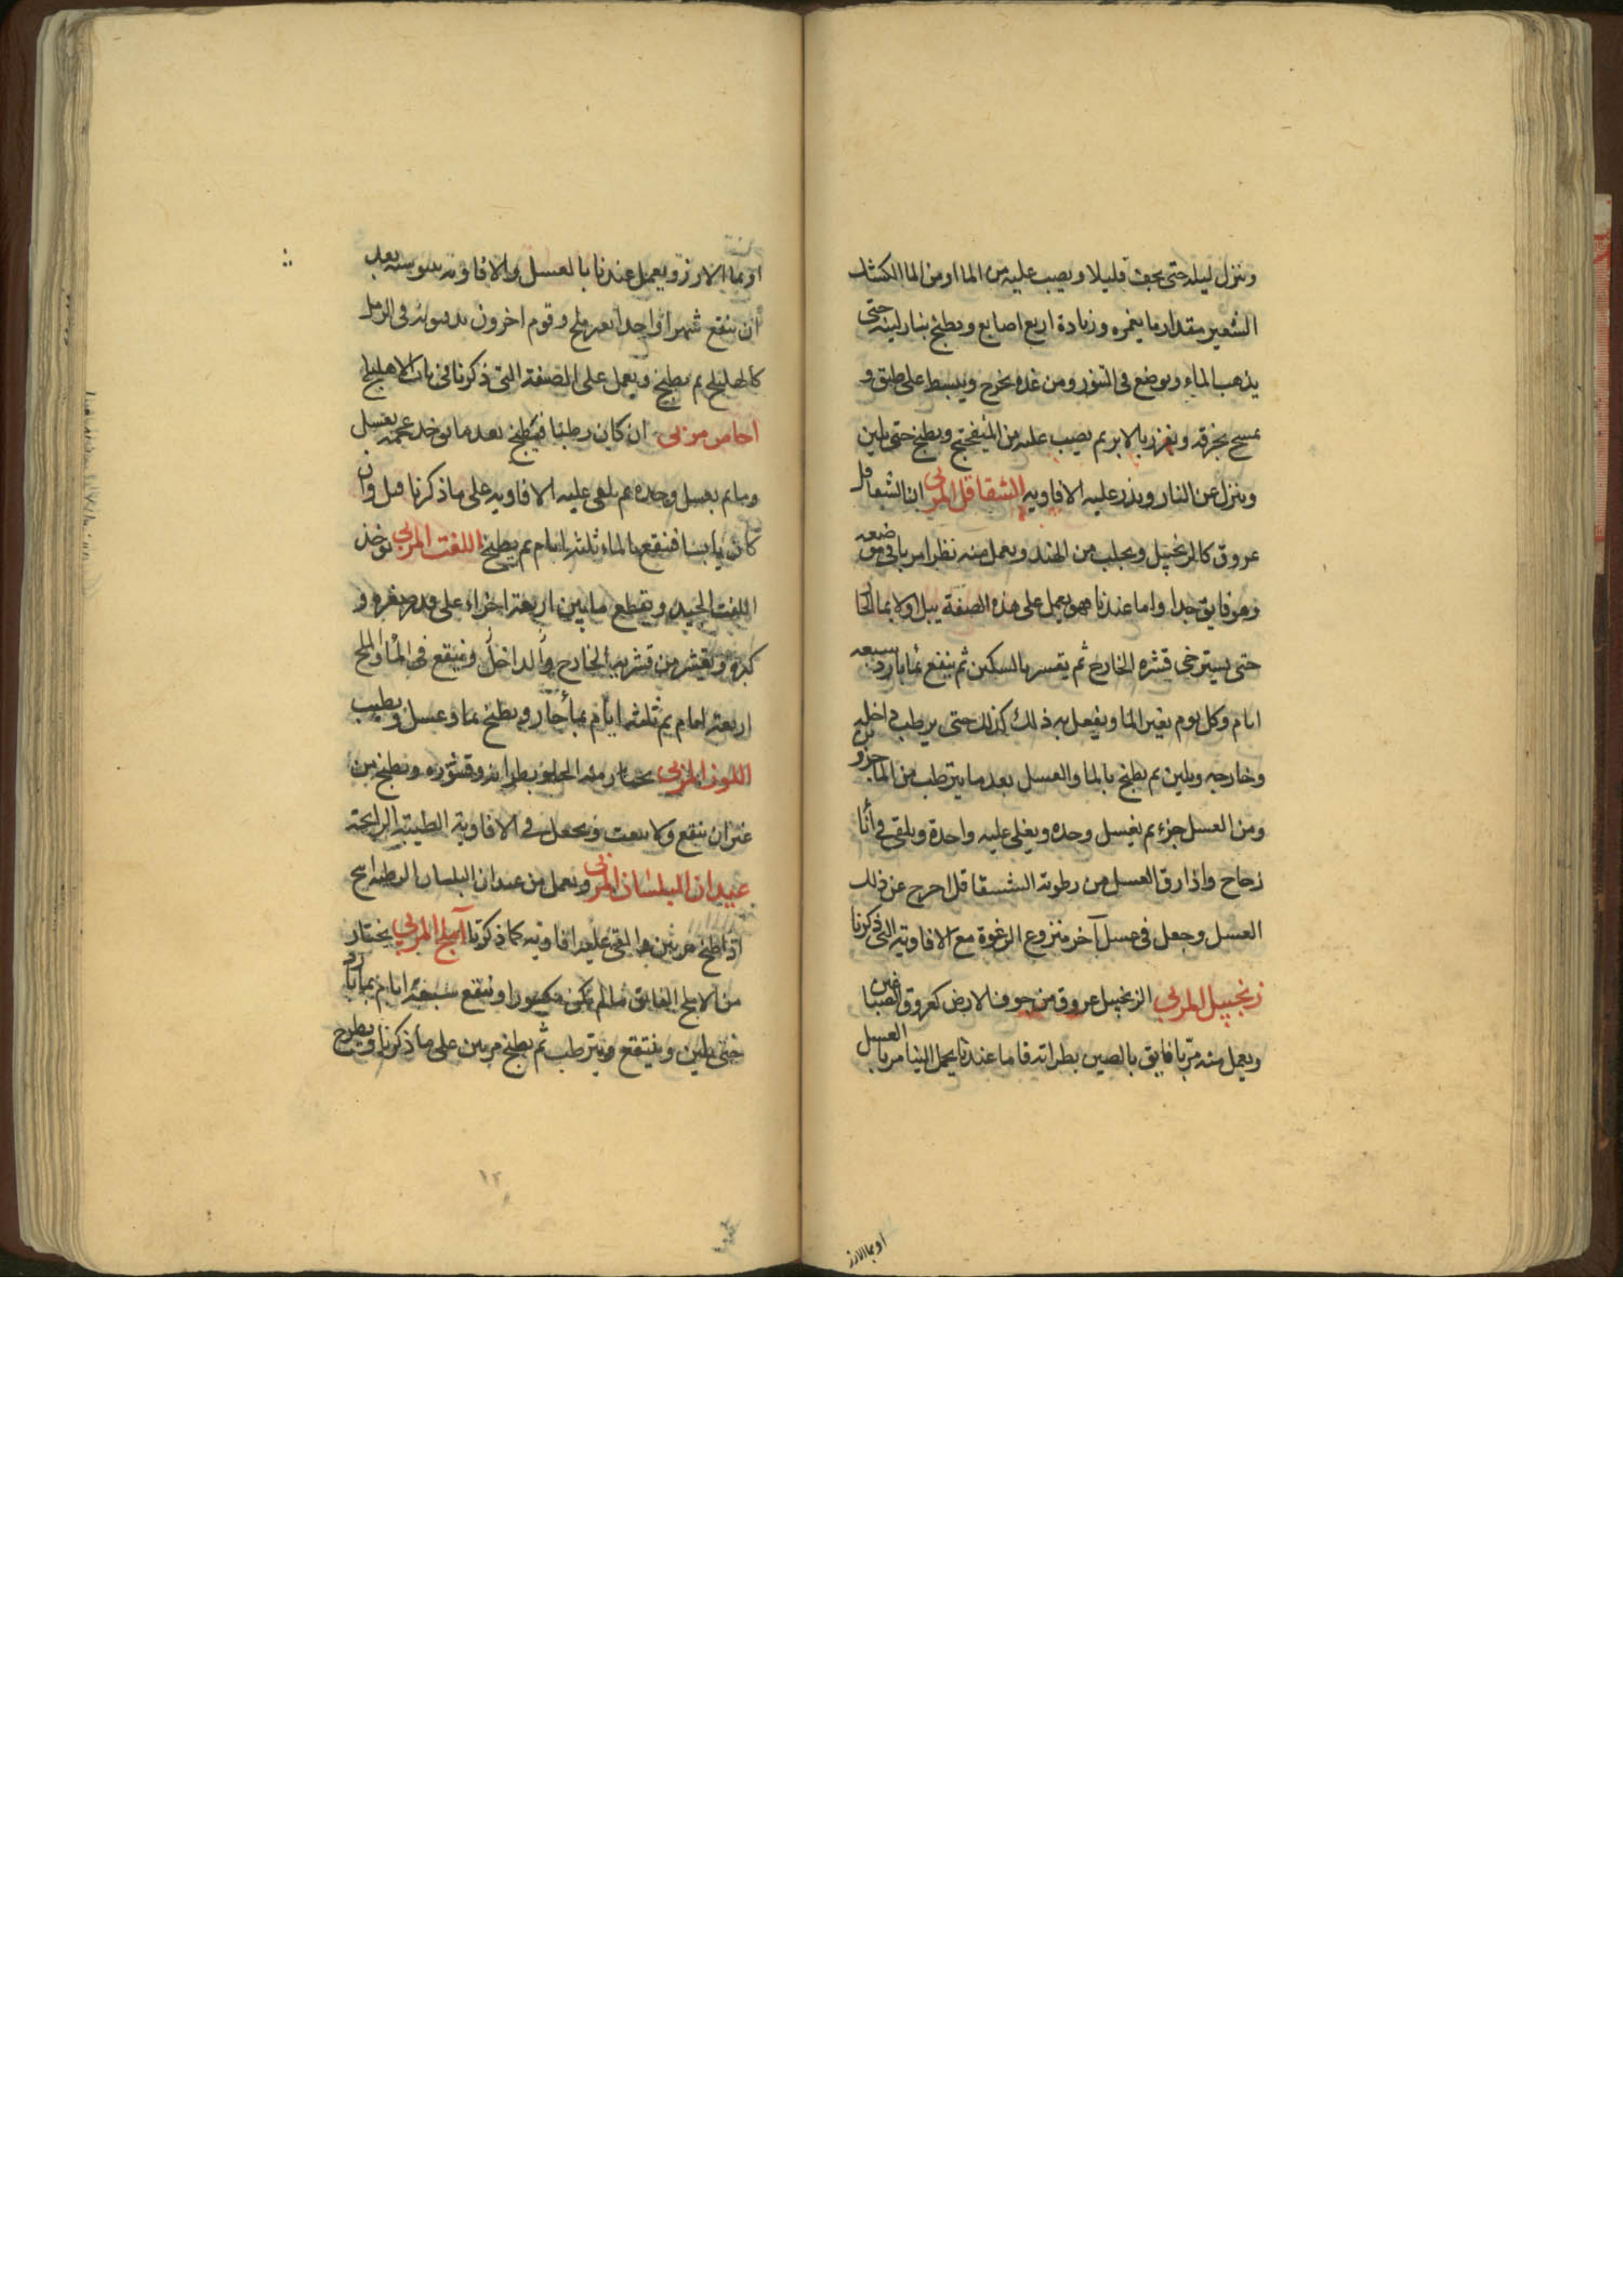 وينزل ليله حتى يجف قليلا ويصب عليه من الما اومن الما الكشك
الشعير مقدار ما يغمره وزيادة اربع اصابع ويطبخ بنار لينه حتى
يذهب الماء ويوضع في التنور ومن غده يخرج ويبسط على طبق و
يمسح بخرقه ويغرز بالابر ثم يصب عليه من الميفختج ويطبخ حتى يلين
وينزل عن النار ويذر عليه الافاويه الشقاقل المربى ان الشقاقل
عروق كالزنجبيل ويجلب من الهند ويعمل منه نظراس بافي موضعه
وهو فايق جدا واما عندنا فهو يعمل على هذه الصفة يبل اولا بما الحا
حتى يسترخى قشره الخارج ثم يقسر بالسكين ثم ينقع بمابارد سبعه
ايام وكل يوم يغير الما ويفعل به ذلك كذلك حتى يرطب داخله
وخارجه ويلين ثم يطبخ بالما والعسل بعد ما يترطب من الما جزو
ومن العسل جزء ثم يغسل وحده ويغلى عليه واحدة ويلقى في أنا
زجاج واذا رق العسل من رطوبة الششقاقل اخرج عن ذلك
العسل وجعل في عسل آخر منزوع الرغوة مع الافاويه التى ذكرنا
زنجبيل المربى الزنجبيل عروق من جوف الارض كعروق الصباغين
ويعمل منه مربا فايق بالصين بطراته فاما عندنا يحمل الينا مربا بالعسل
او بما الارز
او بما الارز ويعمل عندنا بالعسل والافاويه يبوسته بعد
ان ينقع شهرا واحدا بعد ملح وقوم اخرون يدبرونه في الرمل
كالهليلج ثم يطبخ ويعمل على الصفة التى ذكرنا في باب الاهليلج
اجاص مربى ان كان رطبا فيطبخ بعد ما يوخذ عجمه بعسل
وما ثم بعسل وحده ثم يلقى عليه الافاويه على ما ذكرنا قبل وان
كان يابسا فينقع بالماء ثلثة ايام ثم يطبخ اللفت المربى يوخذ
اللفت الجيد ويقطع ما بين اربعة اجزاء على قدر صغره و
كبره ويقشر من قشريه الخارج والداخل وينقع في الماء والملح
اربعة ايام ثم ثلثه ايام بمأ حار ويطبخ بما وعسل ويطيب
اللوز المربى يختار منه الحلو بطراته وقشوره ويطبخ من
غير ان ينقع ولا يبعث ويجعل في الافاوية الطيبة الرايحة
عيدان البلسان المربى ويعمل من عيدان البلسان الرطبه
اذا طبخ مرتين والقى عليه افاويه كما ذكرنا آملج المربى يختار
من الاملج الفايق ما لم يكن مكسورا وينقع سبعة ايام بمابارد
حتى يلين وينتقع ويترطب ثم يطبخ مرتين على ما ذكرنا ويطرح
١٢